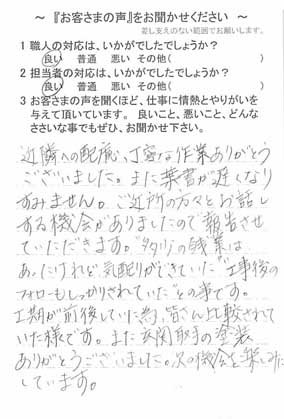 ～ 『お客さまの声』をお聞かせください ～
差し支えのない範囲でお願いします。
1 職人の対応は、いかがでしたでしょうか?
良い 普通 悪い その他( )
2 担当者の対応は、いかがでしたでしょうか?
良い 普通 悪い その他( )
3 お客さまの声を聞くほど、仕事に情熱とやりがいを
与えて頂いています。 良いこと、悪いこと、どんな
ささいな事でもぜひ、お聞かせ下さい。
近隣への配慮、丁寧な作業ありがとう
ございました。また葉書が遅くなり
すみません。ご近所の方々とお話し
する機会がありましたので報告させ
ていただきます。
あったけれど、気配りができていた"“工事後の
フォローもしっかりされていた”との事です。
工期が前後していた為、皆さん比較されて
いた様です。また玄関取手の塗装
ありがとうございました。次の機会を楽しみに
しています。